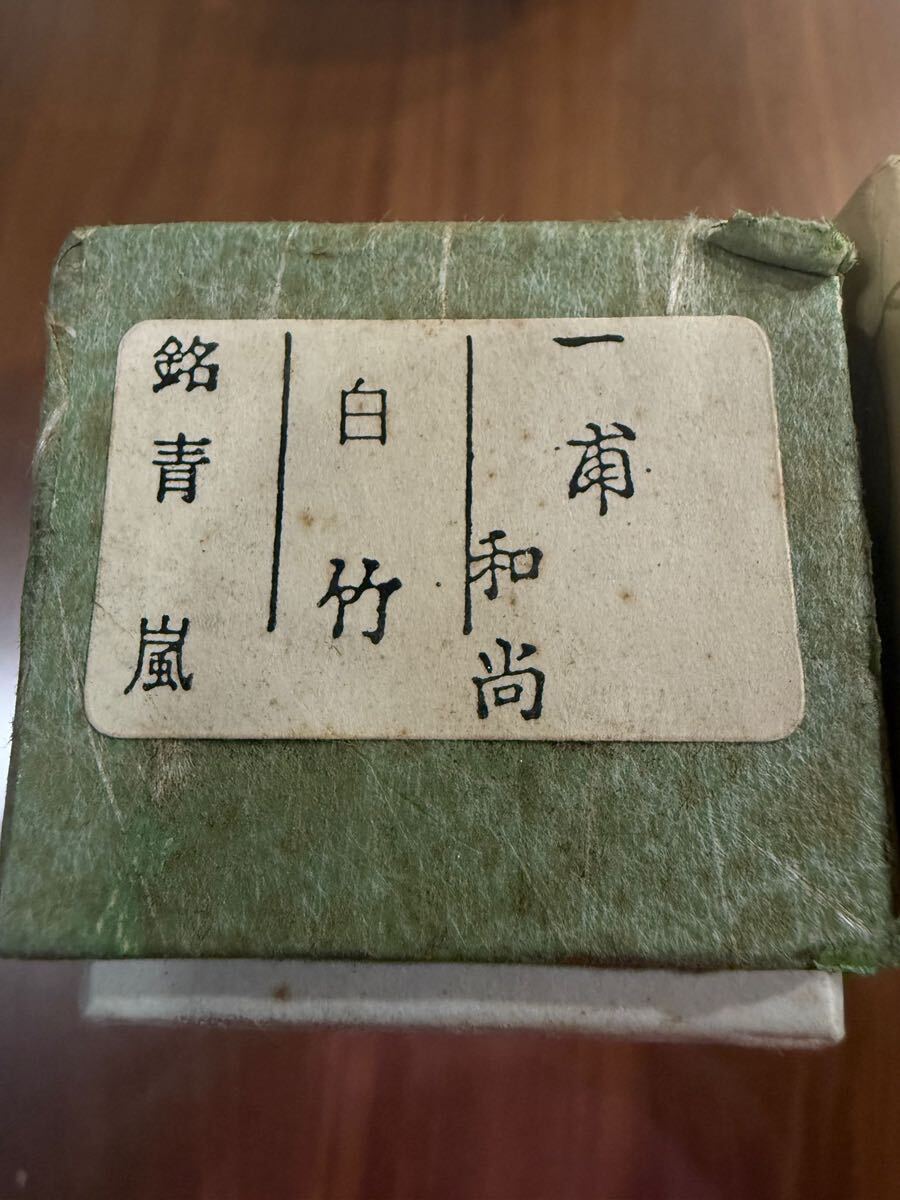 一甫
和尚
白竹
銘青嵐